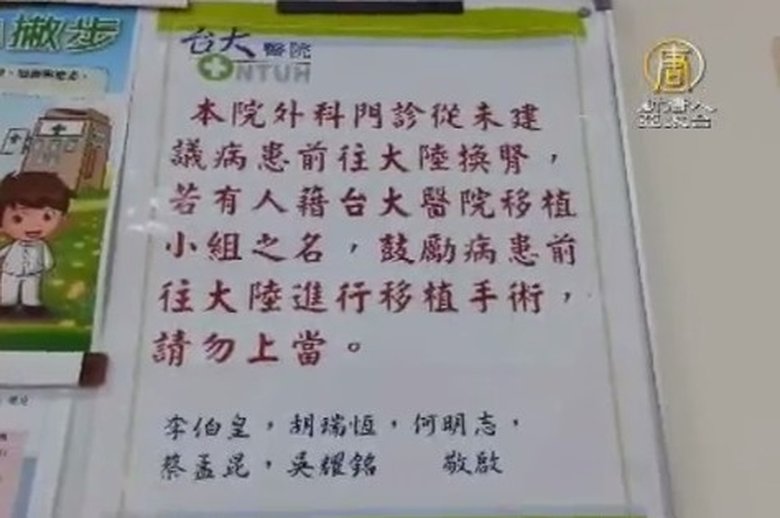 撇步
台大醫院
NTUH
本院外科門診從未建
議病患前往大陸換腎，
若有人籍台大醫院移植
小組之名，鼓勵病患前
往大陸進行移植手術，
請勿上當。
李伯皇，胡瑞恆，何明志，
蔡孟昆，吳耀銘　敬啟
唐
新唐人
亞太台